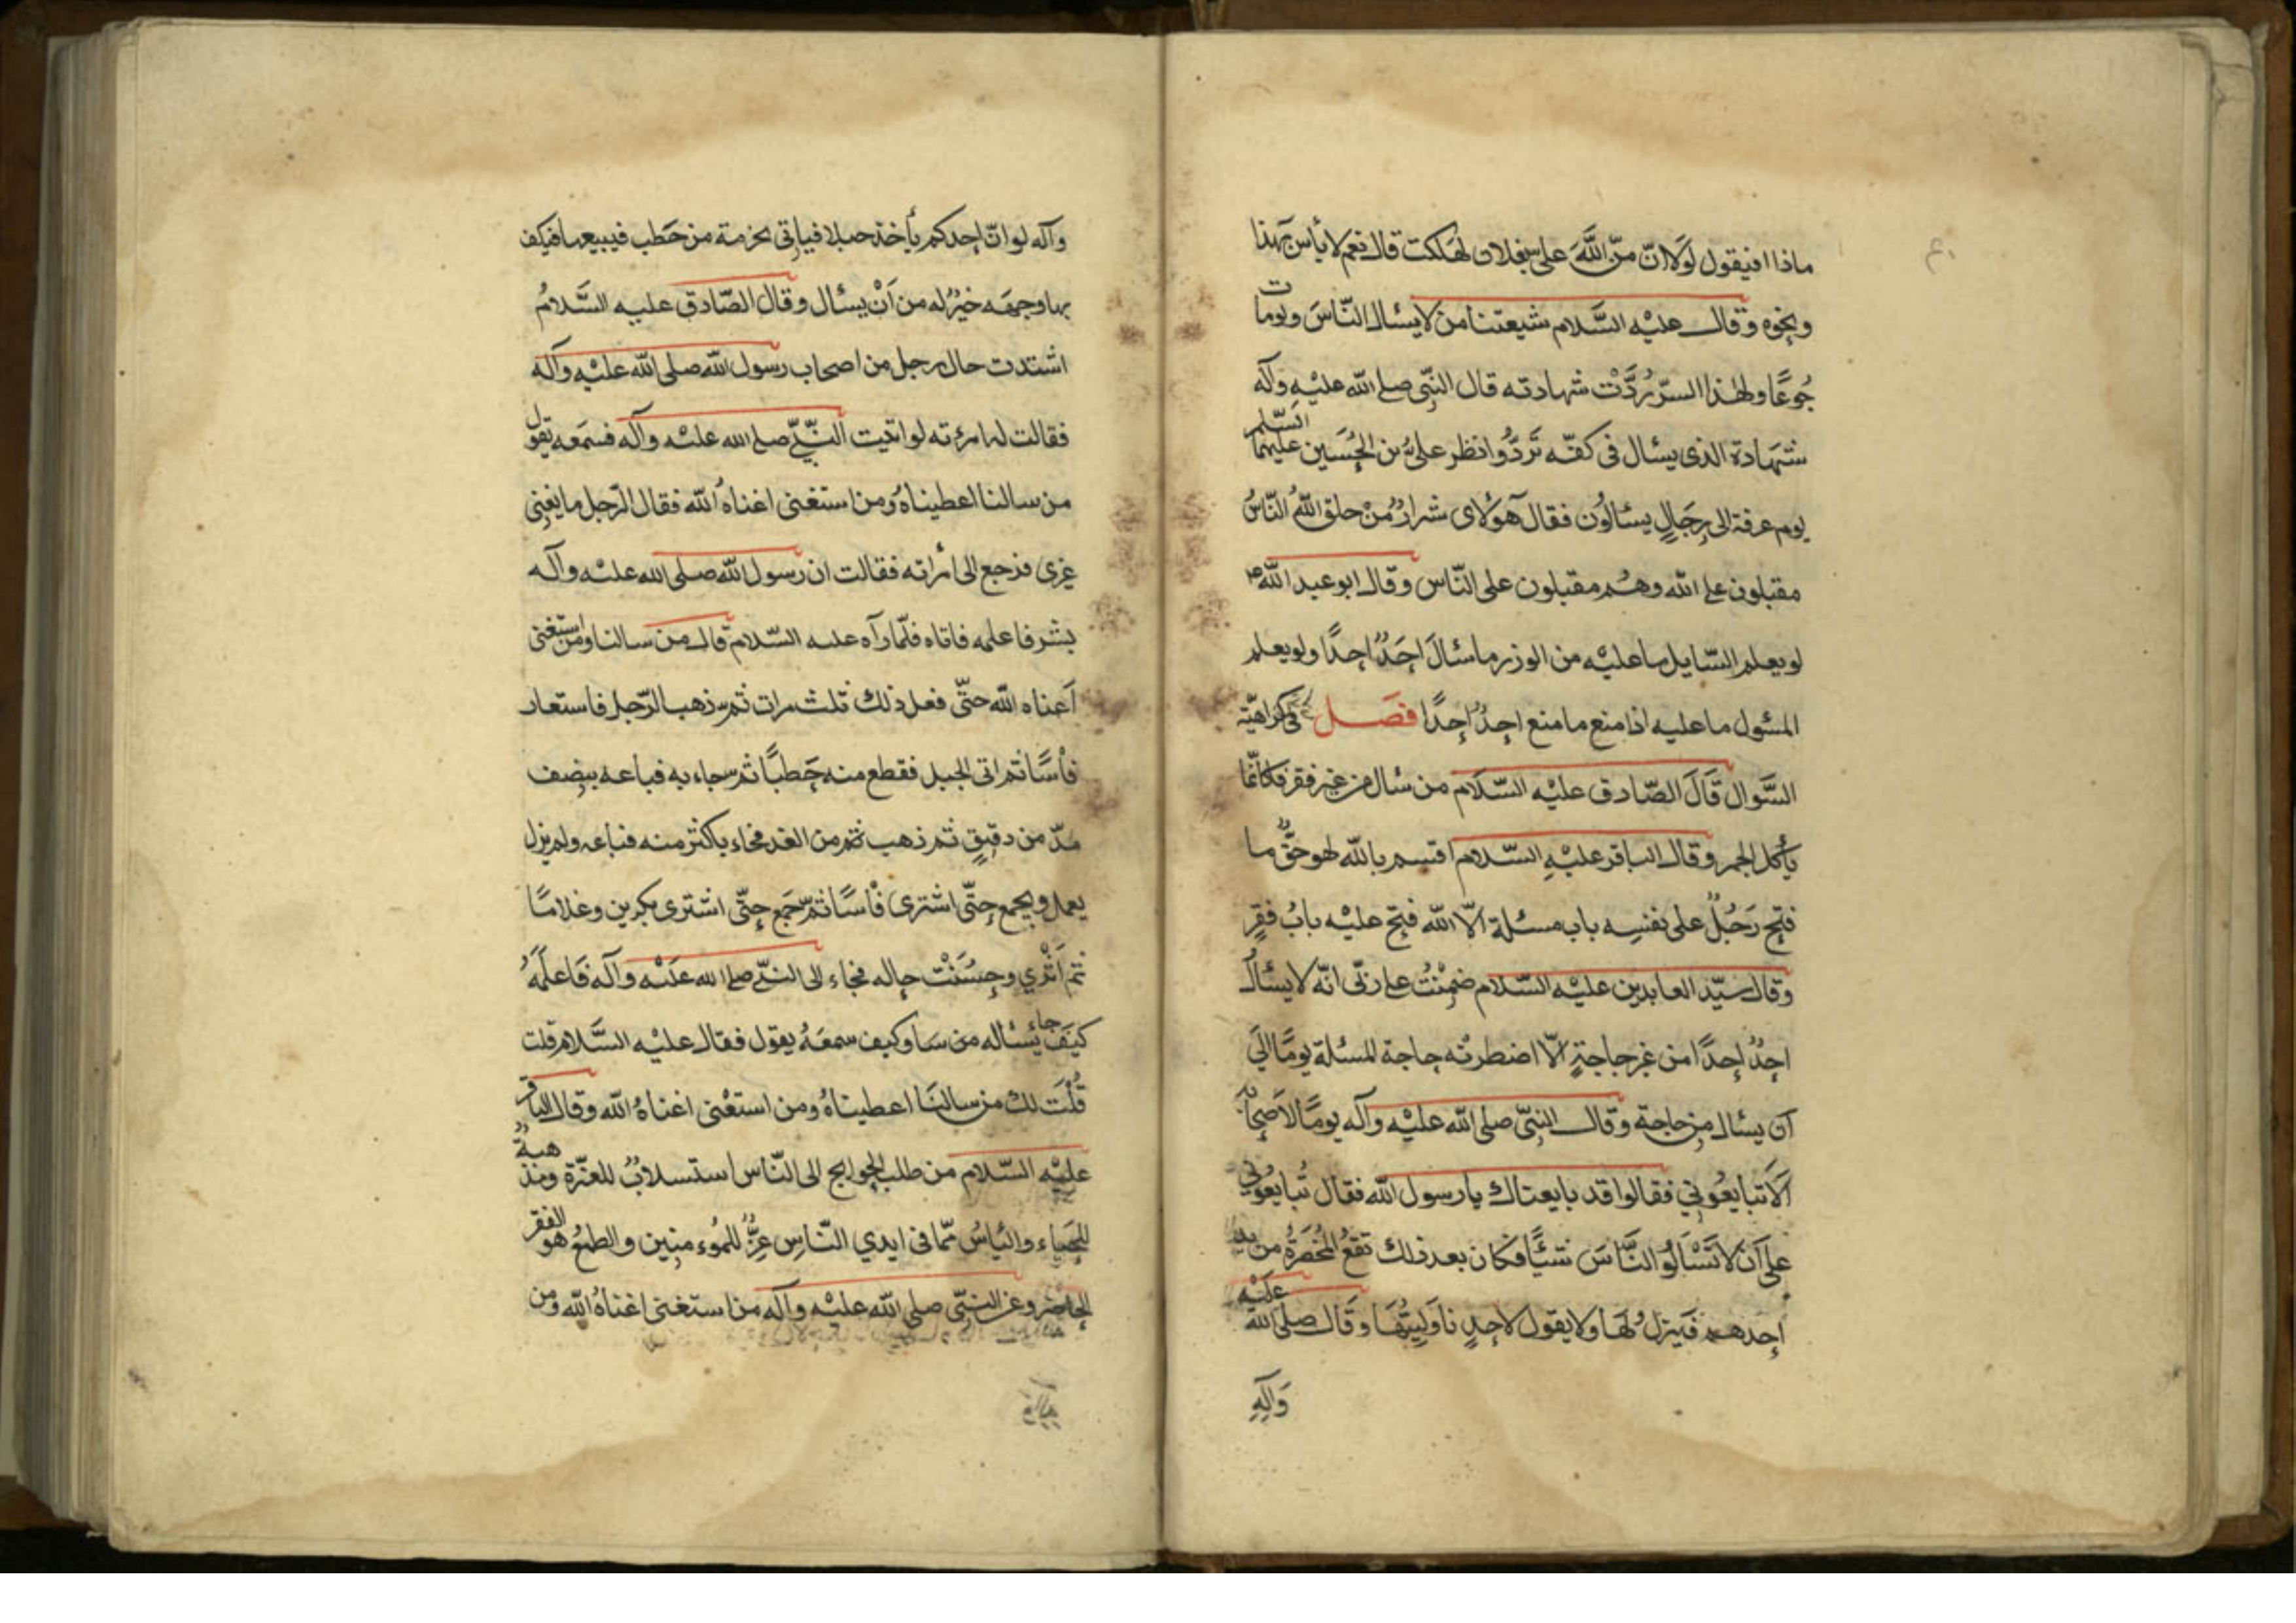 ماذا افيقول لَوَلا انّ مَنّ اللَّهَ على بفلان لهَلكت قال نعم لا بأس بهذا
ونحوه وَقال عليْه السَّلام شيعتنا من لا يسئال النّاسَ ولو مات
جُوعًا ولهٰذا السّرّ رُدَّتْ شهادته قال النبّى صلى الله عليْهِ وآله
شهَادة الذى يسئال فى كفّه تَردُّوا نظر علىُّ بن الحُسَين عليهما السّلم
يوم عرفة الى رِجَالٍ يسئالوُن فقال هَوُلاى شرارُ مُنْ خلق اللهُ النّاسُ
مقبلون على الله وهُم مقبلون على النّاس وقال ابو عبد اللهؑ
لو يعلم السّايل ما عليْه من الوزر ما سئالَ احَدٌ احدًا ولو يعلم
المسْول ما عليه اذا منع ما منع احدٌ احدًا فصَل فى كراهيّة
السَّوال قَالَ الصّادق عليْه السّلام من سئال من غير فقر فكانّما
يأكل الجمر وقال الباقر عليْهِ السّلام اقسم بالله لهو حقٌّ ما
فتح رَجُلٌ على نفسِه باب مسئلة الاّ الله فتح عليْه بابُ فقرٍ
وقال سيّد العابدين عليْه السّلام ضمِنْتُ على ربّى انّه لا يسئالُ
احدٌ احدًا من غير حاجةٍ الاّ اضطرته حاجة المسئلة يومًا الىَ
آن يسئال من حاجة وقال النبّى صلى الله عليْه وآله يومًا لاَصحابه
آلاَ تبايعُونى فقالوا قد بايعناك يا رسول الله فقال تُبايعُونى
على آن لا تَسْالُوا النَّاسَ شيًّا فكان بعد ذلك تقعُ المخْصَرَةُ من يد
احدهم فيَنزلُ لهَا ولا يقول لاحدٍ ناوَليتُهَا وقَال صلى الله عليْه
وَآلِهِ
وآله لو انّ احدكم يأخذ حبلا فيأتى بحزمة من حَطب فيبيعها فيكف
بها وجهَه خيرٌ له من اَنْ يسئال وقال الصّادق عليه السَّلامُ
اشتدت حال رجل من اصحاب رسول الله صلى الله عليْه وآله
فقالت له امرءته لو اتيت النّبىّ صلى الله عليْه وآله فسمَعه يقول
من سالنا اعطيناهُ ومن استغنى اغناهُ الله فقال الرّجل ما يعنى
غيرى فرجع الى امْراته فقالت ان رسول الله صلى الله عليْه وآله
بشر فاعلمه فاتاه فلمّا رآه عليه السّلام قال من سالنا ومن استغنى
اَغناه الله حتّى فعل ذلك ثلث مرات ثم ذهب الرّجل فاستعار
فأسًا ثم اتى الجبل فقطع منه حَطبًا ثم جاء به فباعه بنصف
مدّ من دقيقٍ ثم ذهب من الغد فجاء باكثر منه فباعه ولم يزل
يعمل ويجمع حتّى اشترى فأسًا ثم جمَع حتّى اشترى بكرين وغلامًا
ثم اَثْري وحسُنَتْ حاله فجاء الى النبّى صلى الله عليْه وآله فَاعلَمَهُ
كيَفَ جاء يسئاله وكيف سمعَهُ يقول فقال عليْه السَّلام قلت
قُلْتَ لك من سالنَا اعطيناهُ ومن استغْنى اغناهُ الله وقال الباقر
عليْه السّلام من طلب الحوايج الى النّاس استسلابٌ للعزّة ومذهبةٌ
للحَياء والياْسُ ممّا فى ايدي النّاسِ عِزٌّ للمُوء منِين والطمعُ هو الفقر
الحاضر وعن النبّى صلى الله عليْه وآله من استغنى اغناهُ الله ومن